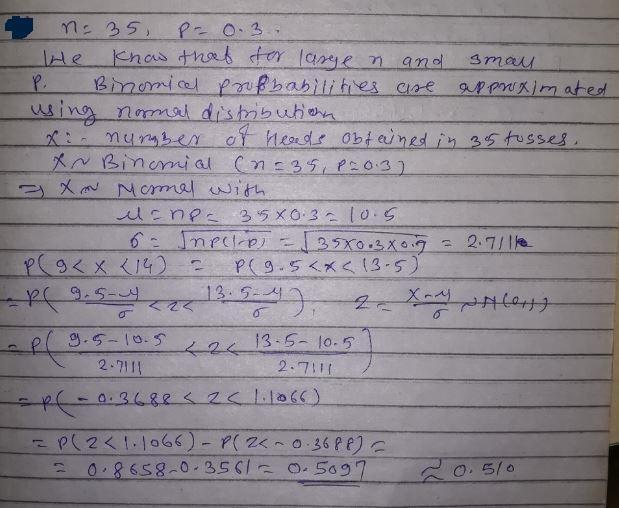 n = 35, p = 0.3.
We know that for large n and small
p. Binomial probbabilities are approximated
using normal distribution
x:- number of Heads obtained in 35 tosses.
X ~ Binomial (n = 35, p = 0.3)
⇒ X ~ Normal with
μ = np = 35 × 0.3 = 10.5
σ = √np(1-p) = √35×0.3×0.7 = 2.7111
P(9 < x < 14) = P(9.5 < x < 13.5)
= P( 9.5-μ/σ < z < 13.5-μ/σ ), z = x-μ/σ ~ N(0,1)
= P( 9.5-10.5/2.7111 < z < 13.5-10.5/2.7111 )
= P( -0.3688 < z < 1.1066)
= P(z < 1.1066) - P(z < -0.3688) =
= 0.8658-0.3561 = 0.5097 ≈ 0.510